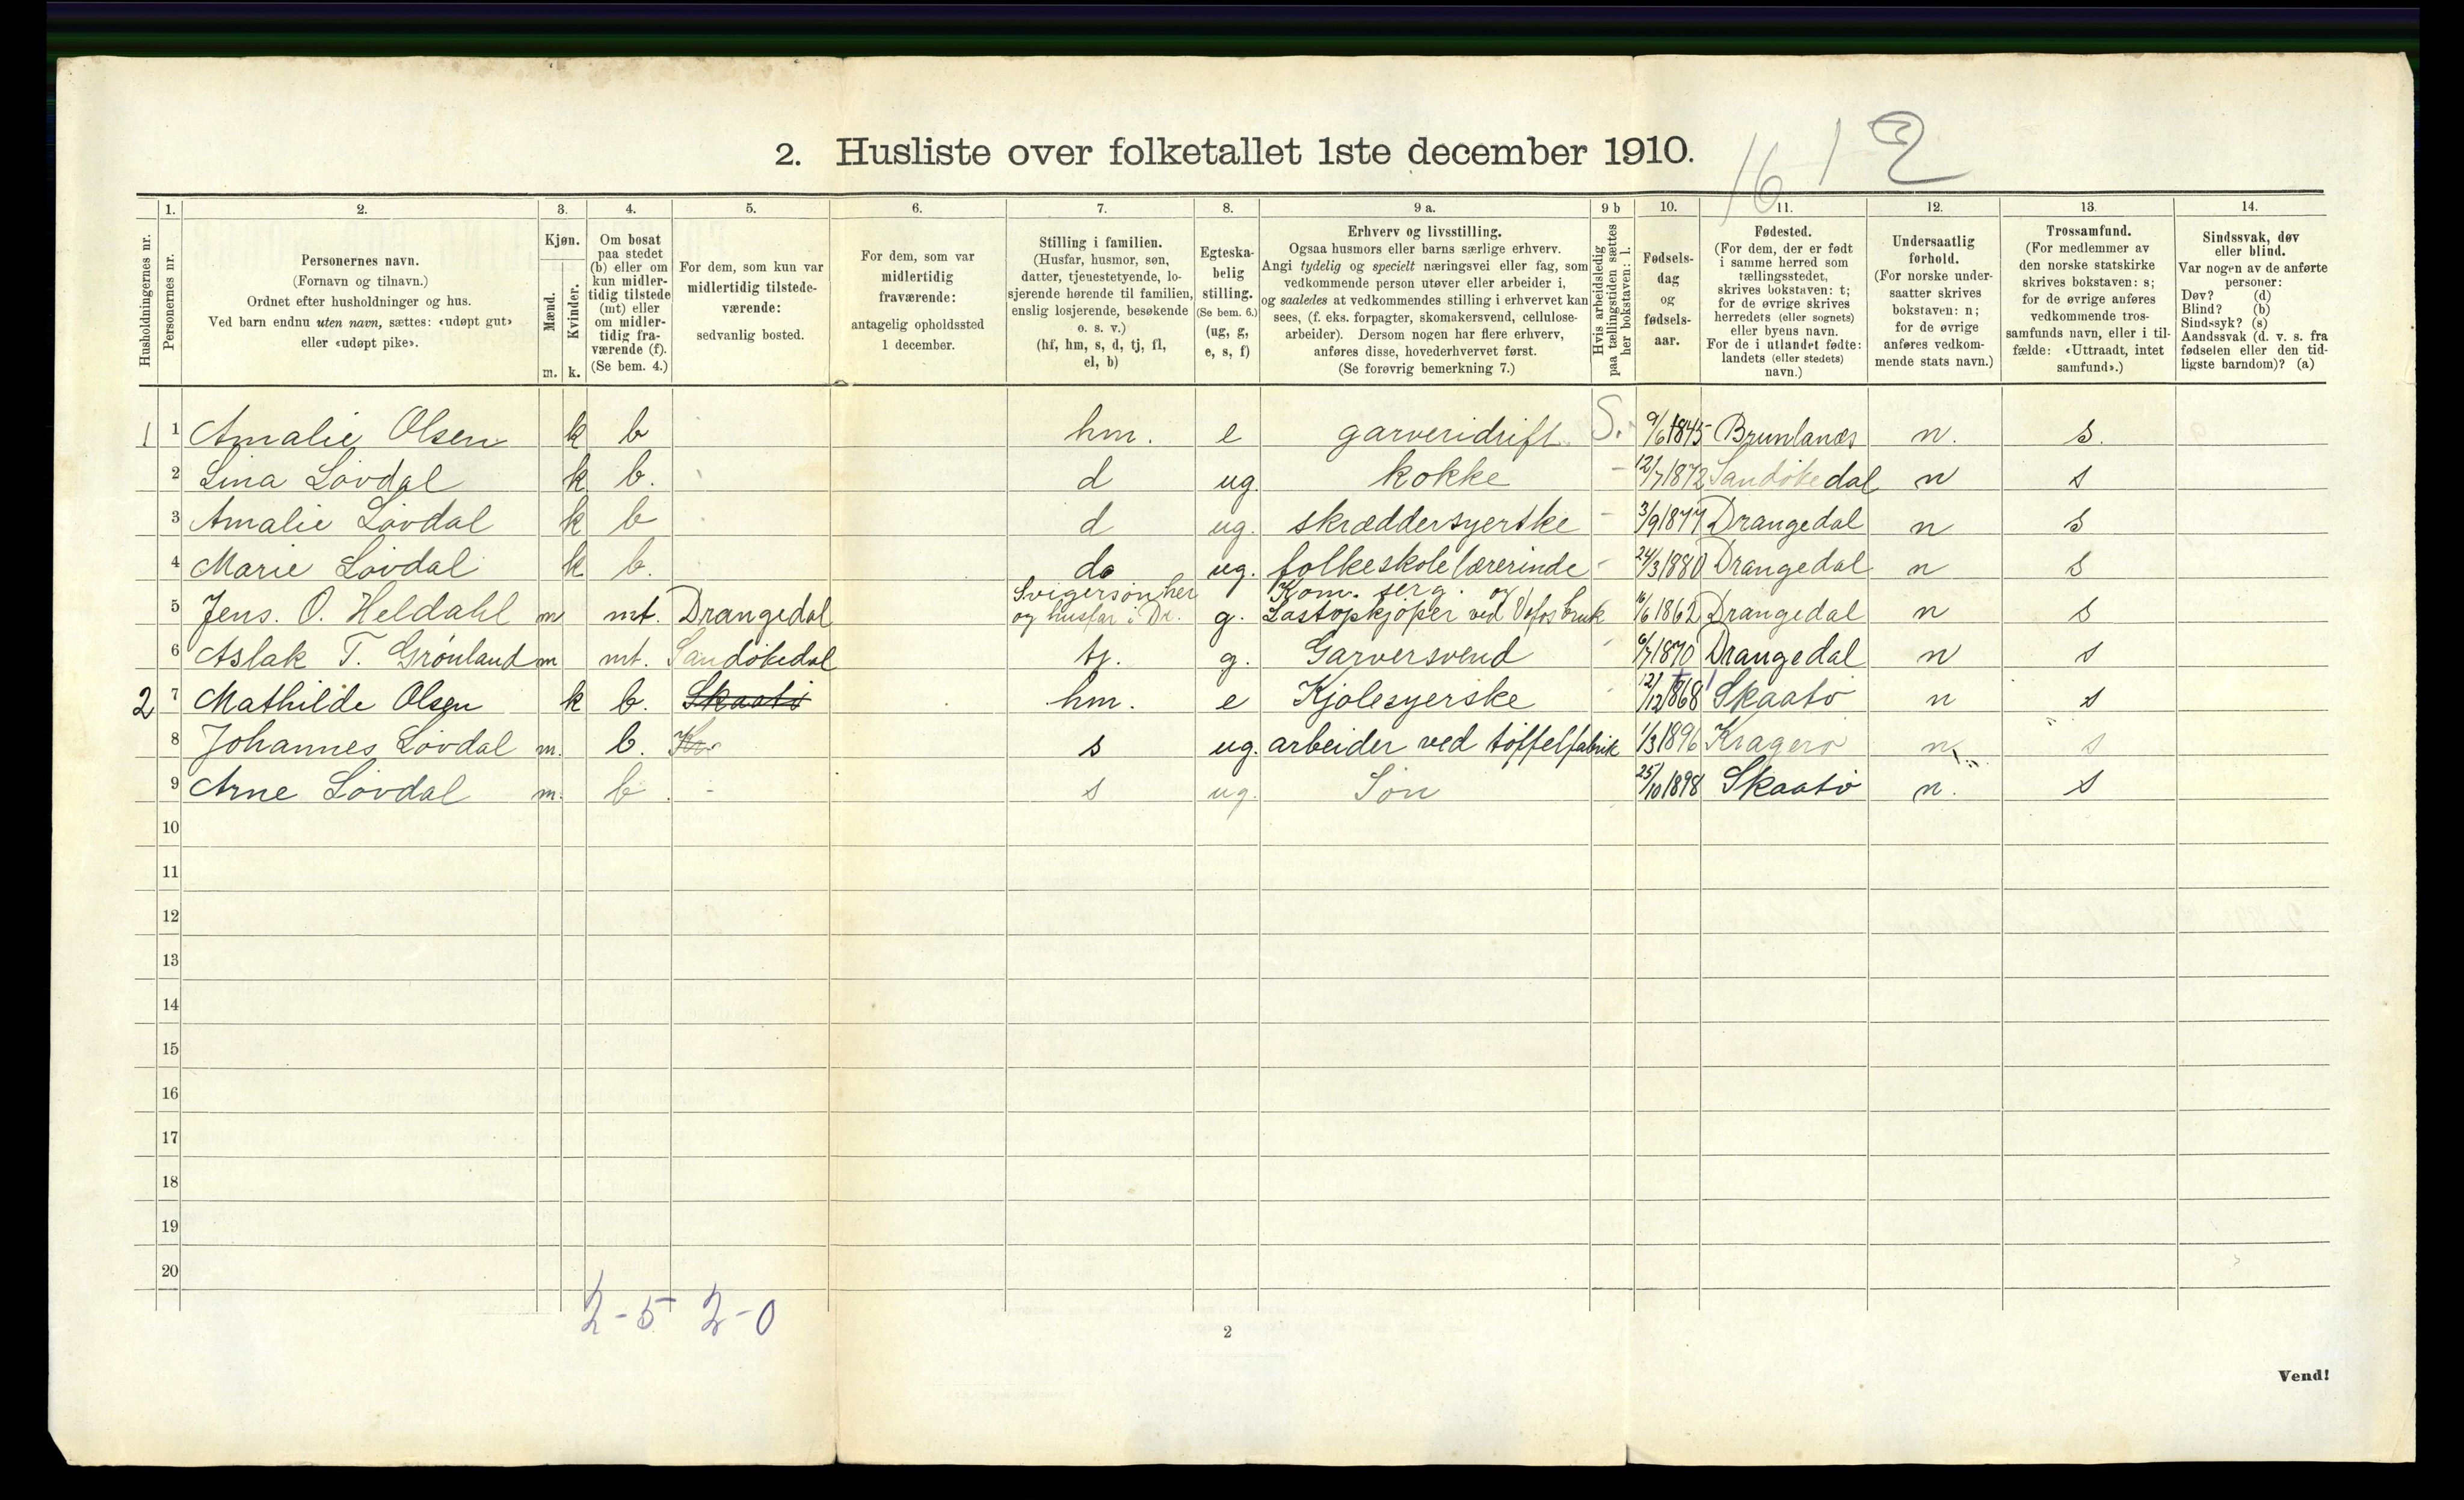 2. Husliste over folketallet 1ste december 1910.
16 1 2
Husholdningernes nr.
1. Personernes nr.
2. Personernes navn.
(Fornavn og tilnavn.)
Ordnet efter husholdninger og hus.
Ved barn endnu uten navn, sættes: «udøpt gut»
eller «udøpt pike».
3. Kjøn.
Mænd. m.
Kvinder. k.
4. Om bosat
paa stedet
(b) eller om
kun midler-
tidig tilstede
(mt) eller
om midler-
tidig fra-
værende (f).
(Se bem. 4.)
5. For dem, som kun var
midlertidig tilstede-
værende:
sedvanlig bosted.
6. For dem, som var
midlertidig
fraværende:
antagelig opholdssted
1 december.
7. Stilling i familien.
(Husfar, husmor, søn,
datter, tjenestetyende, lo-
sjerende hørende til familien,
enslig losjerende, besøkende
o. s. v.)
(hf, hm, s, d, tj, fl,
el, b)
8. Egteska-
belig
stilling.
(Se bem. 6.)
(ug, g,
e, s, f)
9 a. Erhverv og livsstilling.
Ogsaa husmors eller barns særlige erhverv.
Angi tydelig og specielt næringsvei eller fag, som
vedkommende person utøver eller arbeider i,
og saaledes at vedkommendes stilling i erhvervet kan
sees, (f. eks. forpagter, skomakersvend, cellulose-
arbeider). Dersom nogen har flere erhverv,
anføres disse, hovederhvervet først.
(Se forøvrig bemerkning 7.)
9 b Hvis arbeidsledig
paa tællingstiden sættes
her bokstaven: l.
10. Fødsels-
dag
og
fødsels-
aar.
11. Fødested.
(For dem, der er født
i samme herred som
tællingsstedet,
skrives bokstaven: t;
for de øvrige skrives
herredets (eller sognets)
eller byens navn.
For de i utlandet fødte:
landets (eller stedets)
navn.)
12. Undersaatlig
forhold.
(For norske under-
saatter skrives
bokstaven: n;
for de øvrige
anføres vedkom-
mende stats navn.)
13. Trossamfund.
(For medlemmer av
den norske statskirke
skrives bokstaven: s;
for de øvrige anføres
vedkommende tros-
samfunds navn, eller i til-
fælde: «Uttraadt, intet
samfund».)
14. Sindssvak, døv
eller blind.
Var nogen av de anførte
personer:
Døv? (d)
Blind? (b)
Sindssyk? (s)
Aandssvak (d. v. s. fra
fødselen eller den tid-
ligste barndom)? (a)
1 1 Amalie Olsen k b hm. e garveridrift S. 9/6 1845 Brunlanæs n. s.
2 Lina Løvdal k b. d ug kokke - 12/7 1872 Sandøkedal n s
3 Amalie Løvdal k b d ug. skræddersyerske - 3/9 1877 Drangedal n s
4 Marie Løvdal k b. do ug. folkeskolelærerinde - 24/3 1880 Drangedal n s
5 Jens. O. Heldahl m mt. Drangedal Svigersøn her og husfar i Dr. g. Kom. serg. og Lastopkjøper ved Vafos bruk 16/6 1862 Drangedal n s
6 Aslak T. Grønland m mt. Sandøkedal tj. g. Garversvend 6/7 1870 Drangedal n s
2 7 Mathilde Olsen k b. Skaatø hm. e Kjolesyerske 12/12 1868 Skaatø n s
8 Johannes Løvdal m. b. Kr. s ug. arbeider ved tøffelfabrik 1/3 1896 Kragerø n s
9 Arne Løvdal m. b. - s ug. Søn 25/10 1898 Skaatø n. s
10
11
12
13
14
15
16
17
18
19
20
2-5 2-0
2
Vend!